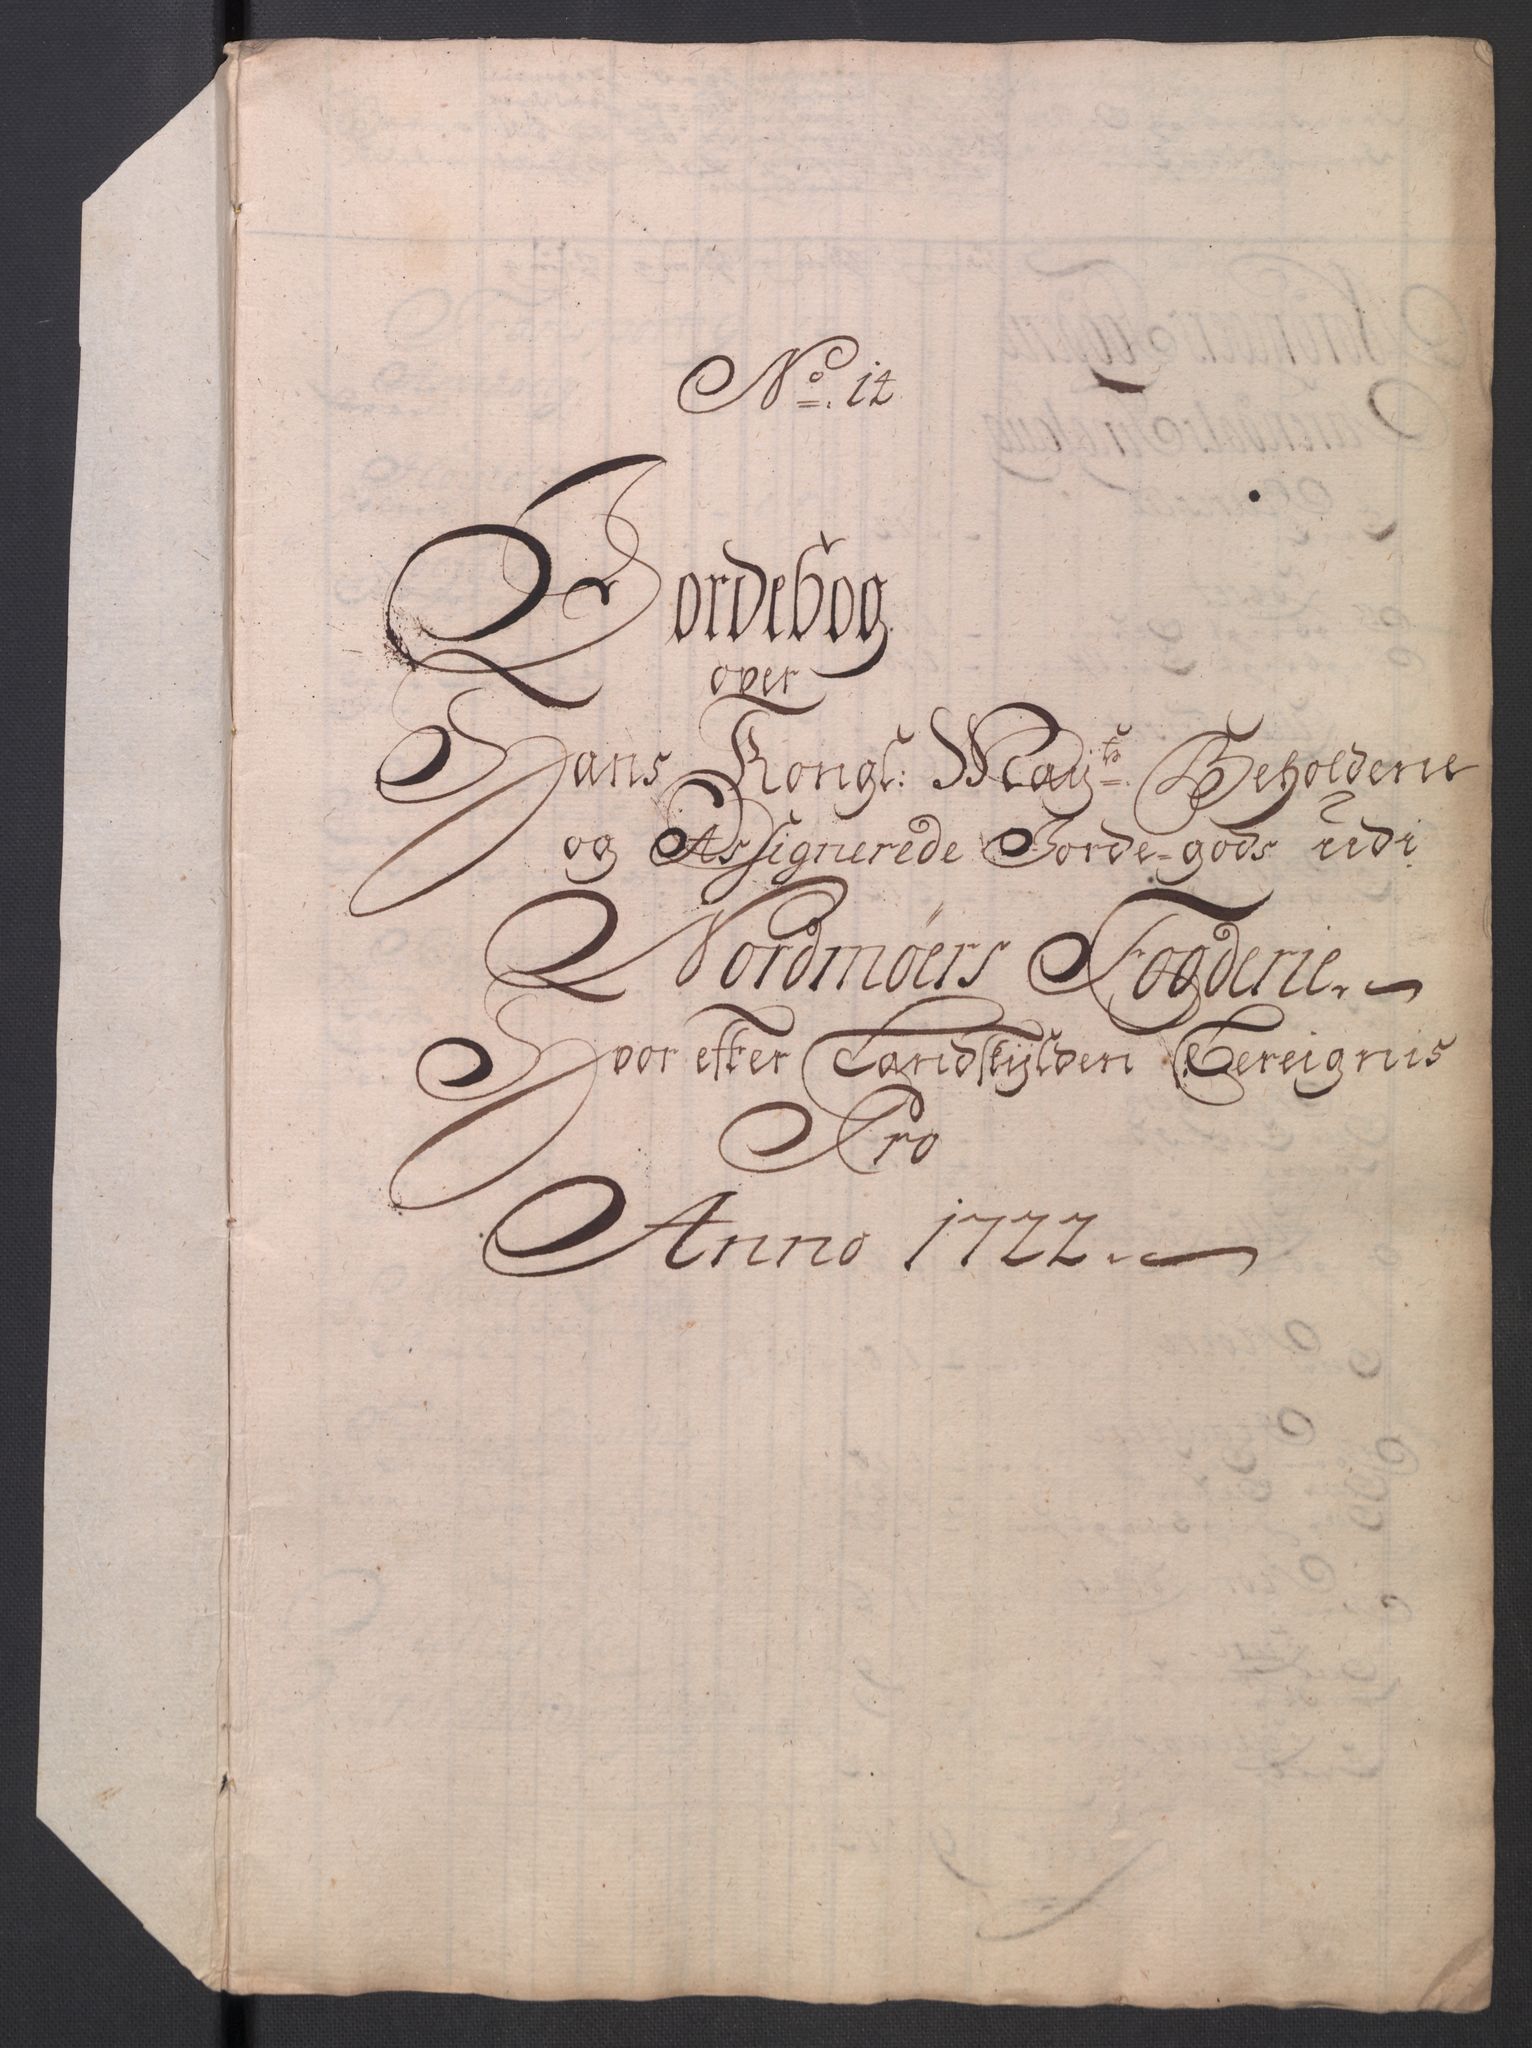 No. 12
Jordebog
over
Hans Kongl: Mayts. Beholdene
og Assignerede Jorde-gods udi
Nordmøers Fogderie.
Hvor efter Landskylden Bereignis
Pro
Anno 1722.